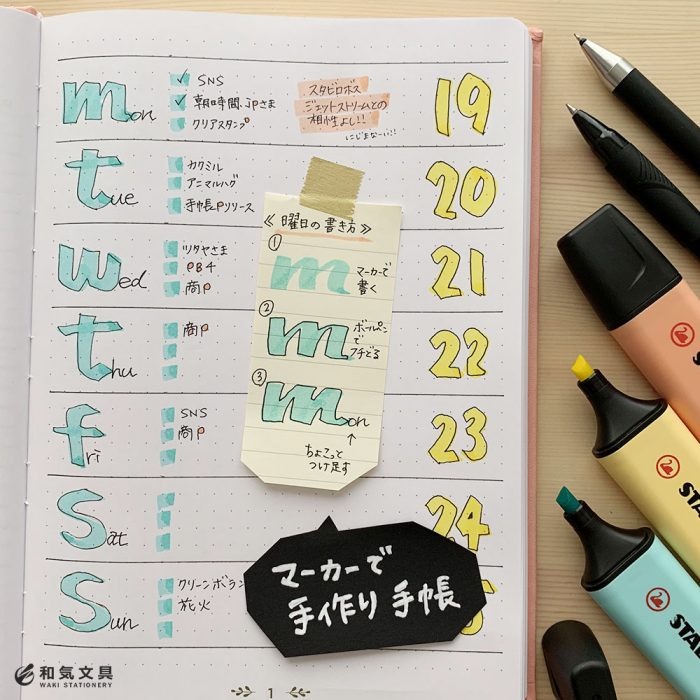 mon
✓ SNS
✓ 朝時間.jpさま
クリアスタンプ
スタビロボス
ジェットストリームとの
相性よし!!
にじまなーい!!
19
tue
カクミル
アニマルハグ
手帳Pリリース
20
wed
ツタヤさま
PB4
商P
21
thu
商P
22
fri
SNS
商P
23
sat
24
sun
クリーンボラン
花火
《曜日の書き方》
① m マーカーで
書く
② m ボールペン
で
フチどる
③ mon
↑
ちょこっと
つけ足す
マーカーで
手作り手帳
1
和気文具
WAKI STATIONERY
STA
STA